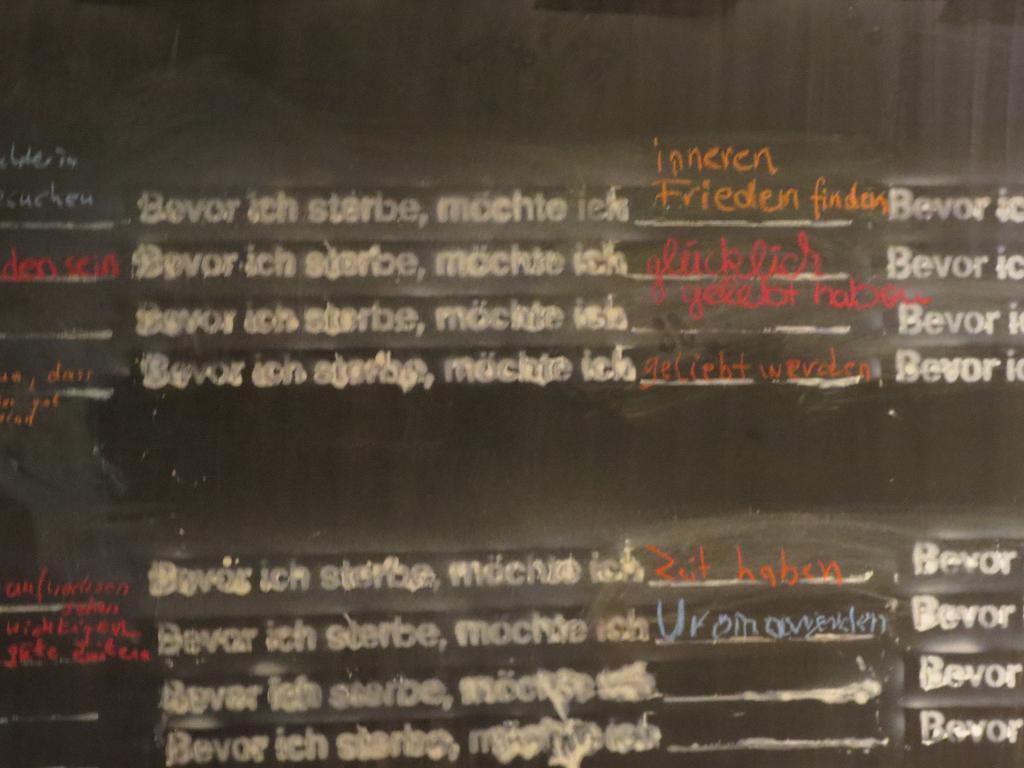 suchen
den sein
dass
inneren
Bevor ich sterbe, möchte ich Frieden finden
Bevor ich sterbe, möchte ich glücklich
gelebt haben
Bevor ich sterbe, möchte ich
Bevor ich sterbe, möchte ich geliebt werden
Bevor ich
Bevor ich
Bevor ich
Bevor ich
Bevor ich sterbe, möchte ich Zeit haben
Bevor ich sterbe, möchte ich Uroma werden
Bevor ich sterbe, möchte ich
Bevor ich sterbe, möchte ich
Bevor
Bevor
Bevor
Bevor